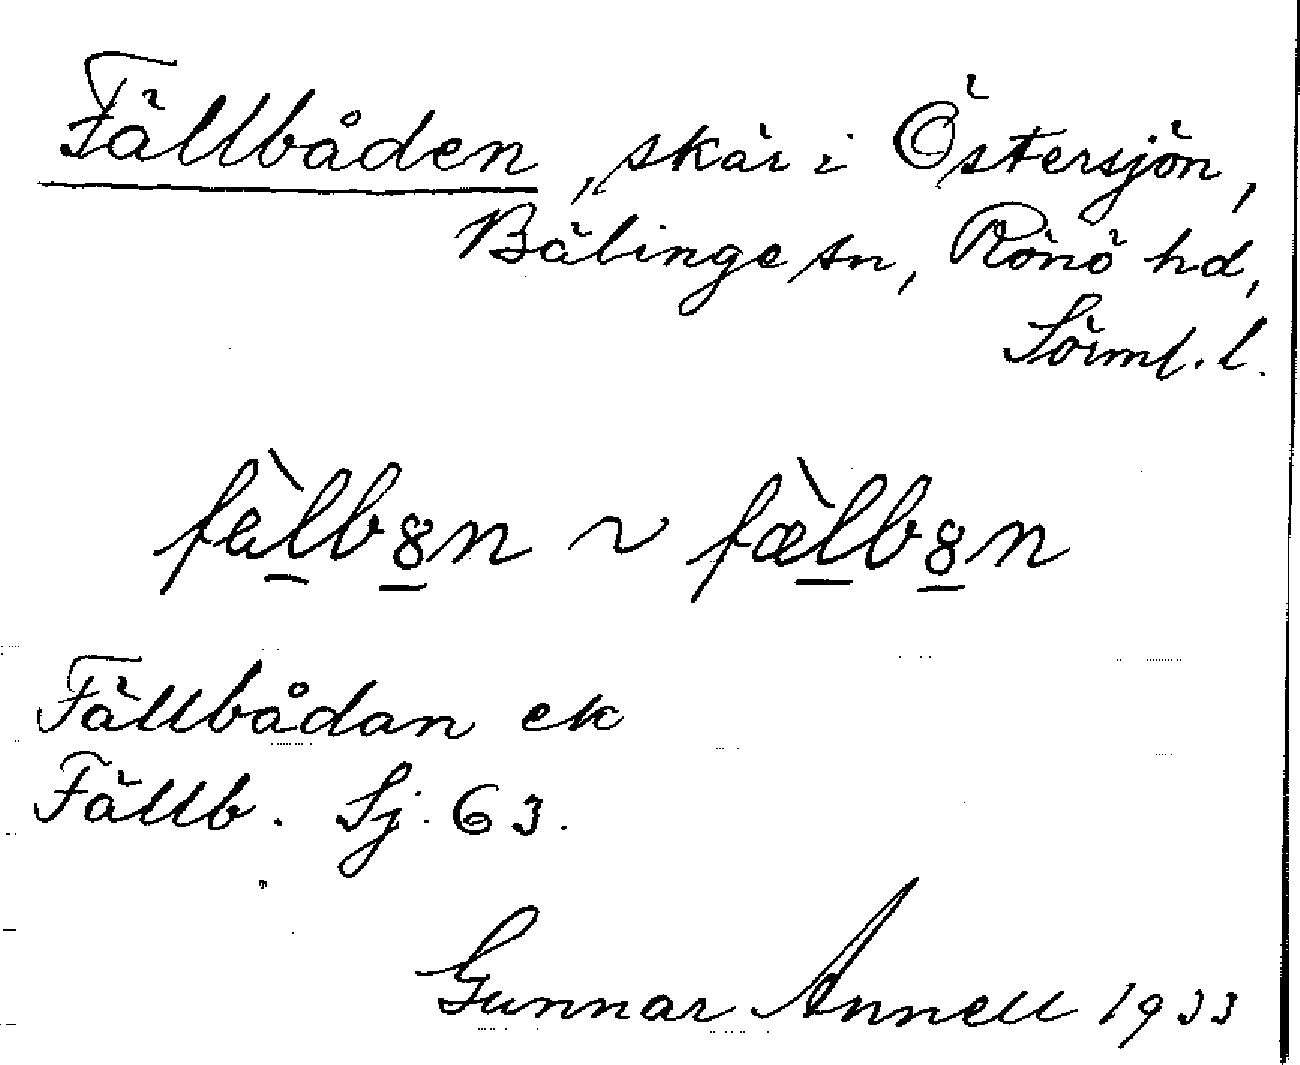 Fällbåden, skär i Östersjön,
Bälinge sn, Rönö hd,
Sörml. l.
fälb8n ~ fælb8n
Fällbådan ek
Fällb. Sj. 63.
Gunnar Annell 1933